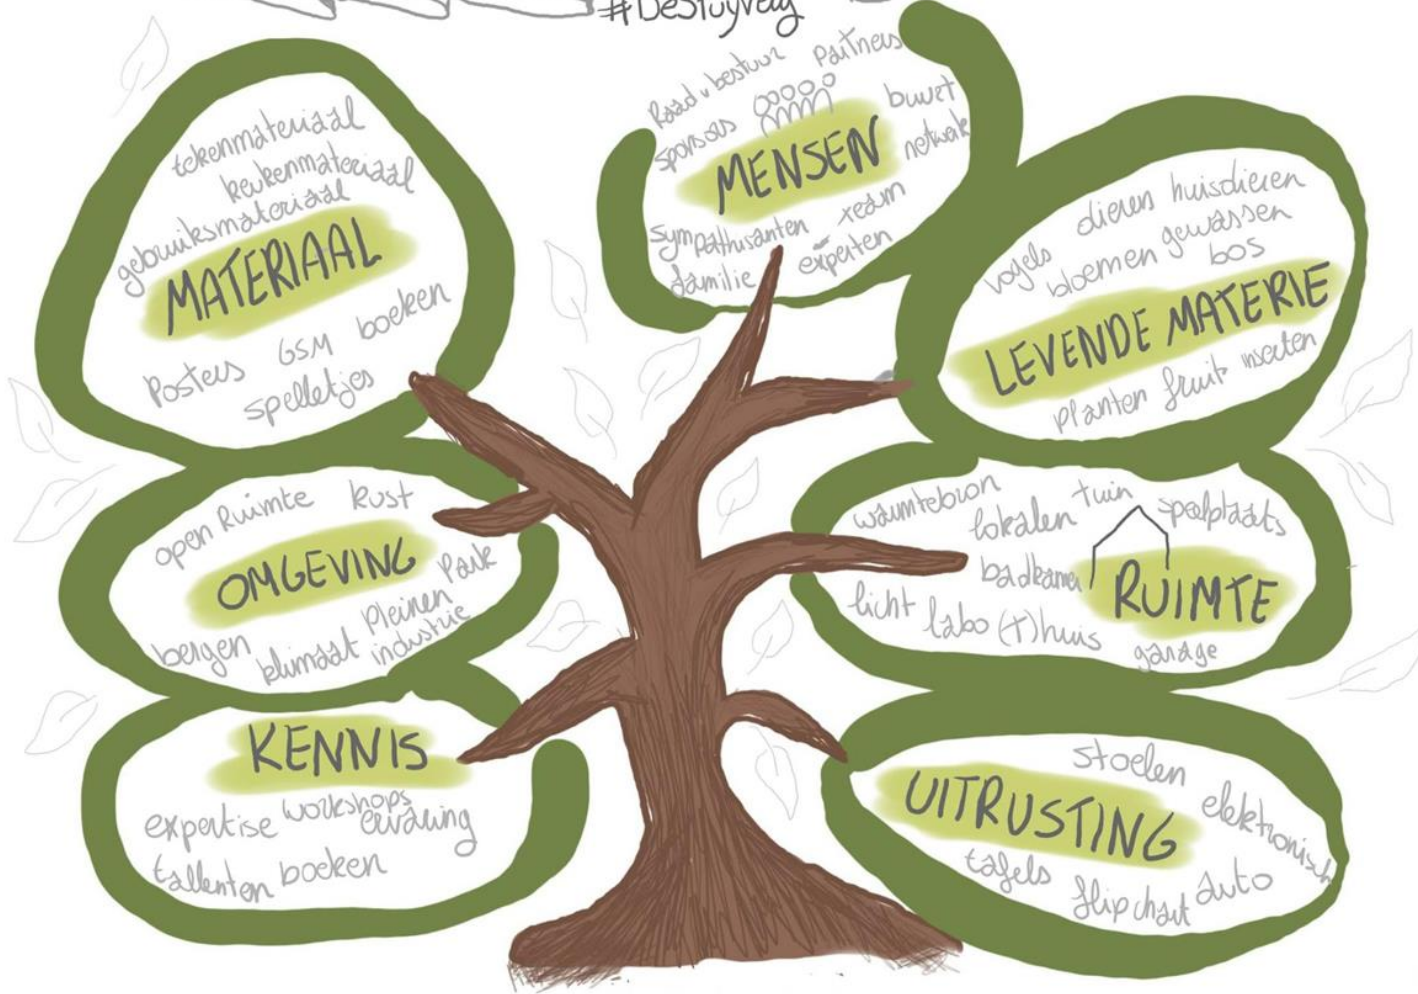 #DeStuyverij
tekenmateriaal
keukenmateriaal
gebruiksmateriaal
MATERIAAL
Posters GSM boeken
spelletjes
Raad v bestuur partners
sponsors buurt
MENSEN netwerk
sympathisanten team
familie experten
vogels dieren huisdieren
bloemen gewassen
bos
LEVENDE MATERIE
planten fruit insecten
open Ruimte kust
OMGEVING
Park
bergen klimaat Pleinen
industrie
warmtebron lokalen tuin speelplaats
badkamer RUIMTE
licht labo (T)huis garage
KENNIS
expertise workshops
ervaring
tallenten boeken
stoelen
UITRUSTING elektronisch
tafels flipchart auto